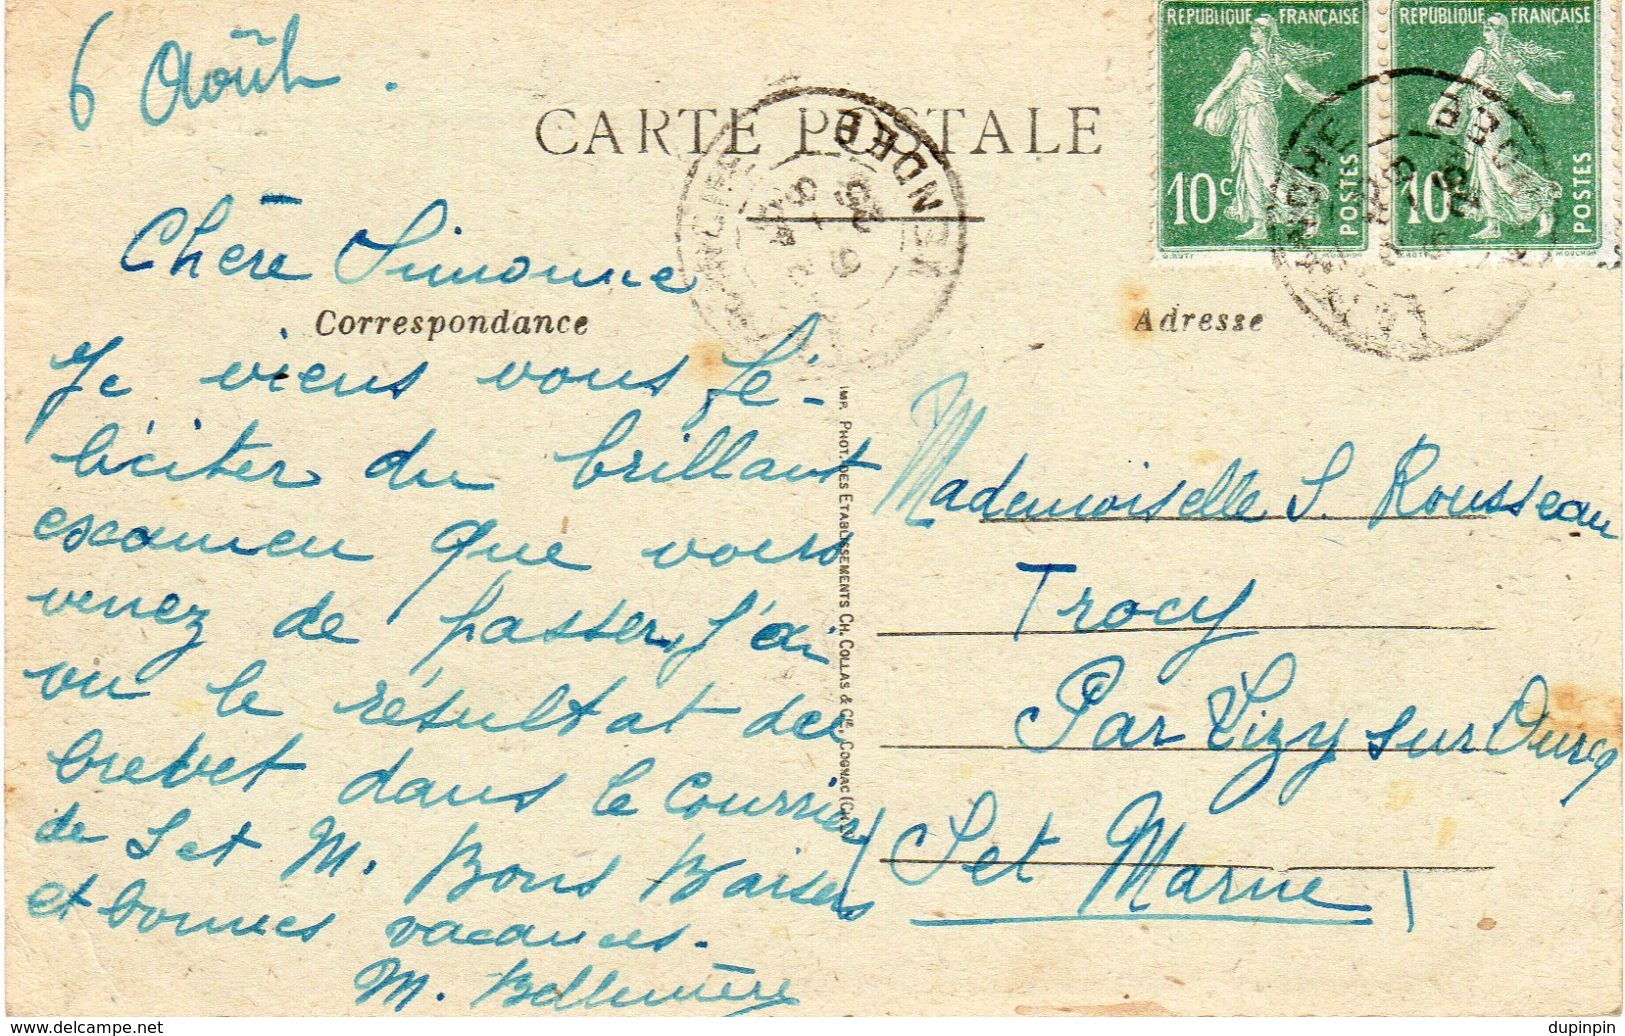 6 Août.
CARTE POSTALE
RÉPUBLIQUE FRANÇAISE
10c POSTES
RÉPUBLIQUE FRANÇAISE
10c POSTES
Chère Simonne
Correspondance
Je viens vous fé-
liciter du brillant
examen que vous
venez de passer, j'ai
vu le résultat des
brevet dans le Courrier
de S et M. Bons Baisers
et bonnes vacances.
M. Bellemère
IMP. PHOT. DES ETABLISSEMENTS CH. COLLAS & Cie, COGNAC
Adresse
Mademoiselle S. Rousseau
Trocy
Par Lizy sur Ourcq
(S et Marne)
VENDÉE
www.delcampe.net
dupinpin